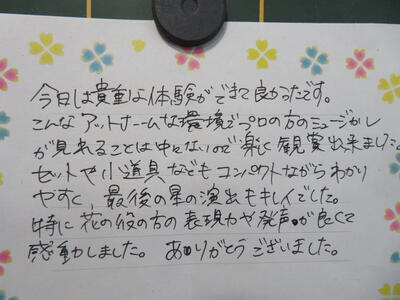 今日は貴重な体験ができて良かったです。
こんなアットホームな環境でプロの方のミュージカル
が見れることは中々ないので楽しく観賞出来ました。
セットや小道具などもコンパクトながらわかり
やすく、最後の星の演出もキレイでした。
特に花の役の方の表現力や発声が良くて
感動しました。ありがとうございました。